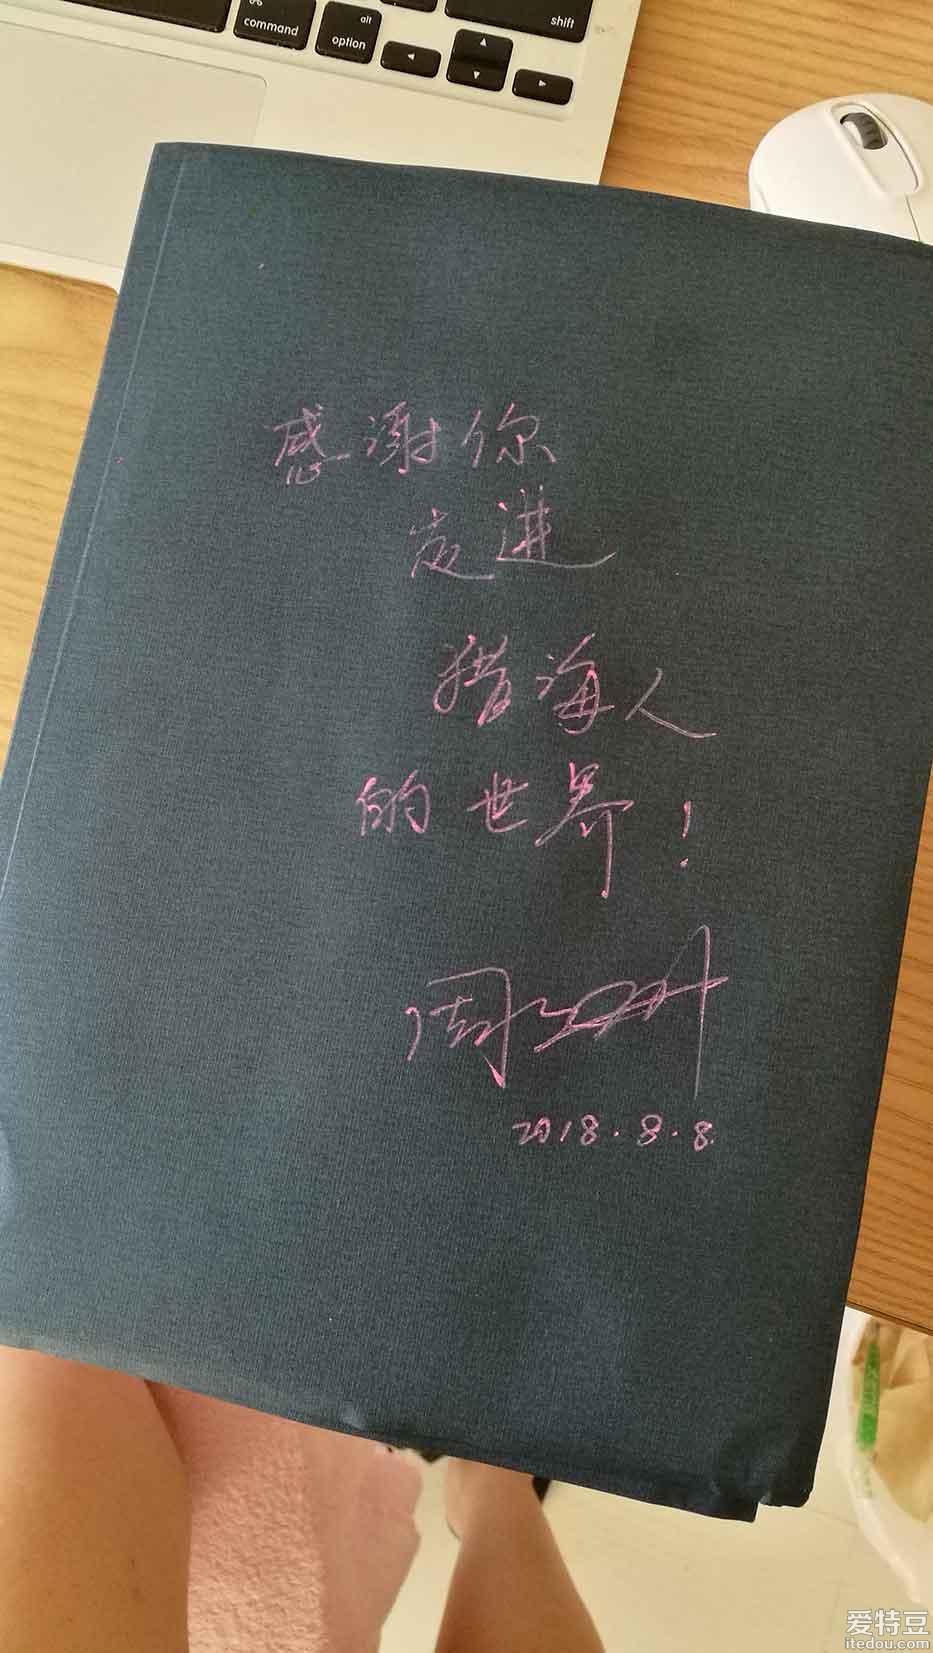 command
alt
option
shift
感谢你
走进
猎海人
的世界!
周
2018.8.8
爱特豆
itedou.com